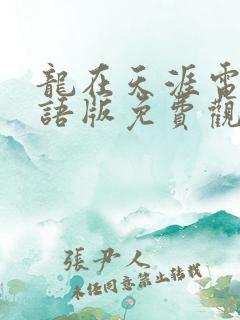 龍在天涯電
語版免費觀
張尹人
未經同意禁止轉載